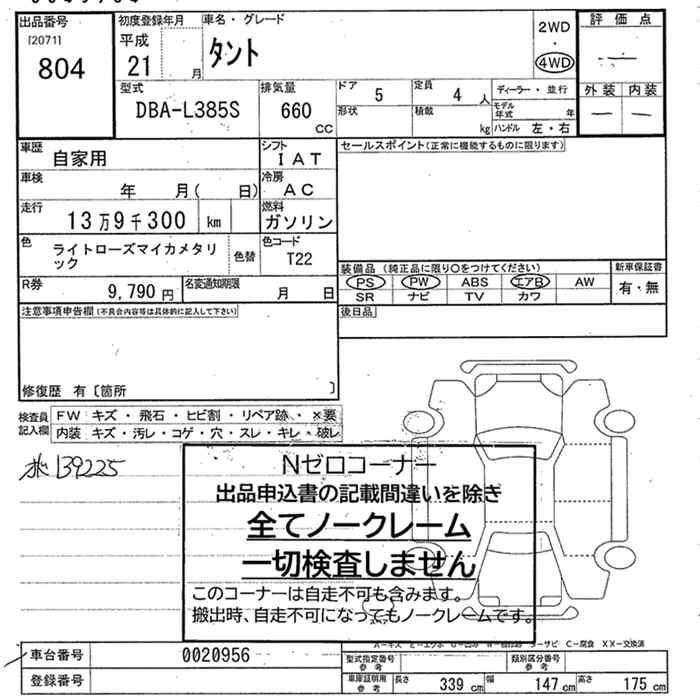 出品番号
[2071]
804
初度登録年月
平成
21 月
車名・グレード
タント
2WD
・
4WD
評価点
—
外装 内装
— —
型式
DBA-L385S
排気量
660
CC
ドア 5
形状
定員 4 人
積載 kg
ディーラー・並行
モデル
年式 年
ハンドル 左・右
車歴
自家用
シフト
IAT
セールスポイント(正常に機能するものに限ります)
車検
年 月( 日)
冷房
AC
走行
13万9千300 km
燃料
ガソリン
色
ライトローズマイカメタリ
ック
色替
色コード
T22
装備品(純正品に限り○をつけてください)
PS PW ABS エアB AW
SR ナビ TV カワ
新車保証書
有・無
R券
9,790 円
名変通知期限
月 日
後日品
注意事項申告欄(不具合内容等は具体的に記入して下さい)
修復歴 有〔箇所 〕
検査員
記入欄
FW キズ・飛石・ヒビ割・リペア跡・×要
内装 キズ・汚レ・コゲ・穴・スレ・キレ・破レ
139225
Nゼロコーナー
出品申込書の記載間違いを除き
全てノークレーム
一切検査しません
このコーナーは自走不可も含みます。
搬出時、自走不可になってもノークレームです。
C-腐食 XX-交換済
車台番号 0020956
登録番号
型式指定番号
参考
類別区分番号
参考
車庫証明用
参考
長さ 339 cm 幅 147 cm 高さ 175 cm